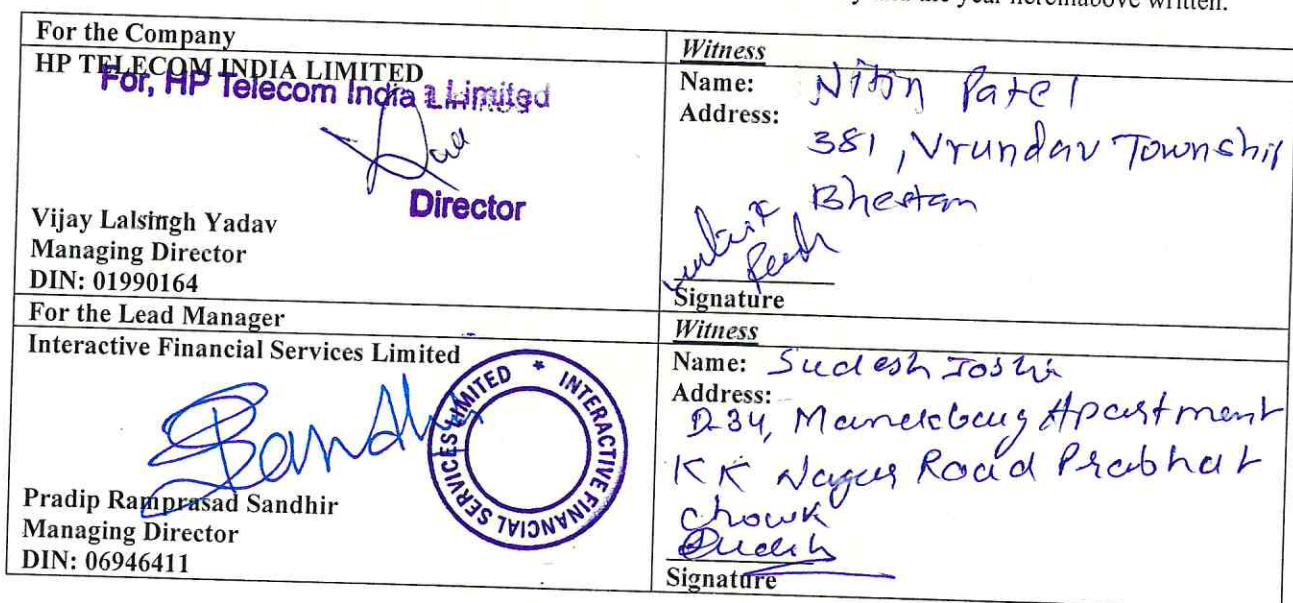 the year hereinabove written.
For the Company
HP TELECOM INDIA LIMITED
For, HP Telecom India Limited
Director
Vijay Lalsingh Yadav
Managing Director
DIN: 01990164
Witness
Name: Nitin Patel
Address:
381, Vrundav Township
Bhestan
Signature
For the Lead Manager
Interactive Financial Services Limited
Sandhir
INTERACTIVE FINANCIAL SERVICES LIMITED *
Pradip Ramprasad Sandhir
Managing Director
DIN: 06946411
Witness
Name: Sudesh Joshi
Address:
D-34, Manekbaug Apartment
KK Nagar Road Prabhat
Chowk
Sudesh
Signature